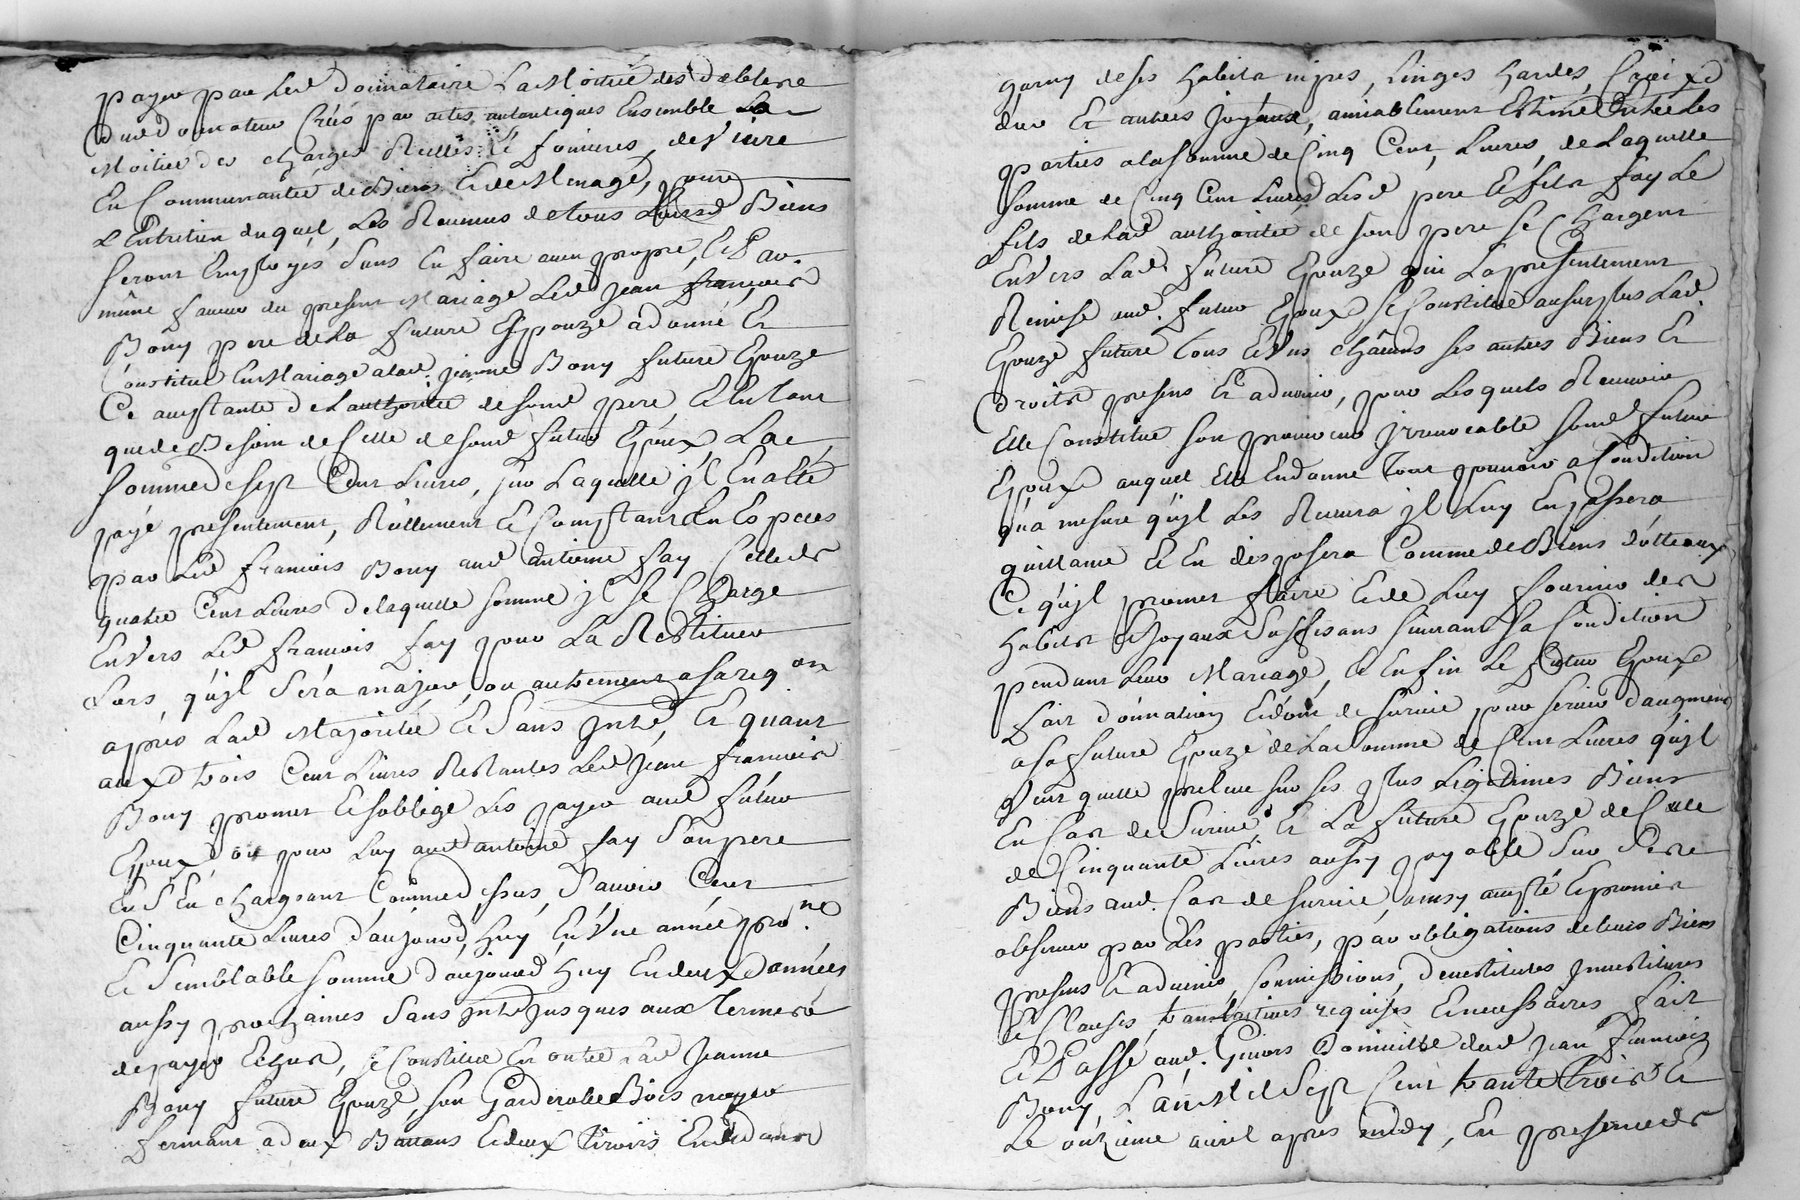 payer par led donnataire La Moitié des debtes
dud donnateur Créés par actes autantiques Ensemble La
Moitié des charges Réelles Et fonieres, de Viure
En Communautée de Biens Et de Menage, pour
L'Entretien duquel, Les Reuenus de tous Leursd Biens
seront Employés sans En faire aucun propre, Et En
même faueur du present Mariage Led jean françois
Bony pere de La future Epouze a donné Et
Constitué En Mariage a lad. jeanne Bony future Epouze
Ce acceptante de L'authoritée de sond pere, Et En tant
que de Besoin de Celle de sond futur Epoux, La
somme de sept Cent Liures, sur Laquelle jl En a Eté
payé presentement, Réellement Et Comptant En Especes
par Led francois Bony aud antoine fay Celle de
quatre Cent Liures de laquelle somme jl se Charge
Envers Led francois fay pour La Restituer
Lors, qu'jl sera majeur, ou autrement a sa reqon
apres Lad Majoritée Et sans jnté, Et quant
aux trois Cent Liures Restantes Led jean francois
Bony promet Et soblige Les payer aud futur
Epoux ou pour Luy aud antoine fay son pere
En s'En chargeant Comme dessus, sauoir Cent
Cinquante Liures d'aujourd'huy En Vne année pro.ne
Et semblable somme d'aujourd'huy En deux années
aussy prochaines sans jnté jusques aux termes
de payer Echus, se Constitue En outre Lad Jeanne
Bony future Epouze, son Garderobe Bois noyer
fermant a deux Battans Et deux tiroirs En dedans
garny de ses habits nipes, Linges hardes, Croix
d'or Et autres joyaux, amiablement Estimé Entre Les
parties a la somme de Cinq Cent Liures, de Laquelle
somme de Cinq Cent Liures Lesd pere Et fils fay Le
fils de Lad authoritée de son pere se Chargent
Envers Lad future Epouze qui La presentement
Remise aud. futur Epoux, se Constitue au surplus Lad.
Epouze future tous Et Vns châcuns ses autres Biens Et
droits presens Et aduenir, pour Lesquels Receuoir
Elle Constitue son procureur jrreuocable sond futur
Epoux auquel Elle En donne tout pouuoir a Condition
qu'a mesure qu'jl Les Receura jl Luy En passera
quittance Et En disposera Comme de Biens dotteaux
Ce qu'jl promet faire Et de Luy fournir des
habits Et joyaux suffisans suiuant sa Condition
pendant Leur Mariage, Et Enfin Le futur Epoux
fait donnation Et don de suruie pour seruir d'augment
a sa future Epouze de La somme de Cent Liures qu'jl
Veut quelle preleue sur ses plus Legitimes Biens
En Cas de suruie, Et La future Epouze de Celle
de Cinquante Liures aussy payable sur ses
Biens aud. Cas de suruie, ainsy accepté Et promis
obseruer par Les parties, par obligations de leurs Biens
presens Et aduenir, soumissions, deuestitures jnuestitures
Et Clauses translatiues requises Et necessaires fait
Et Passé aud. Giuors Domicille dud jean francois
Bony, L'an Mil Sept Cent trante trois Et
Le onzieme auril apres midy, En presence de